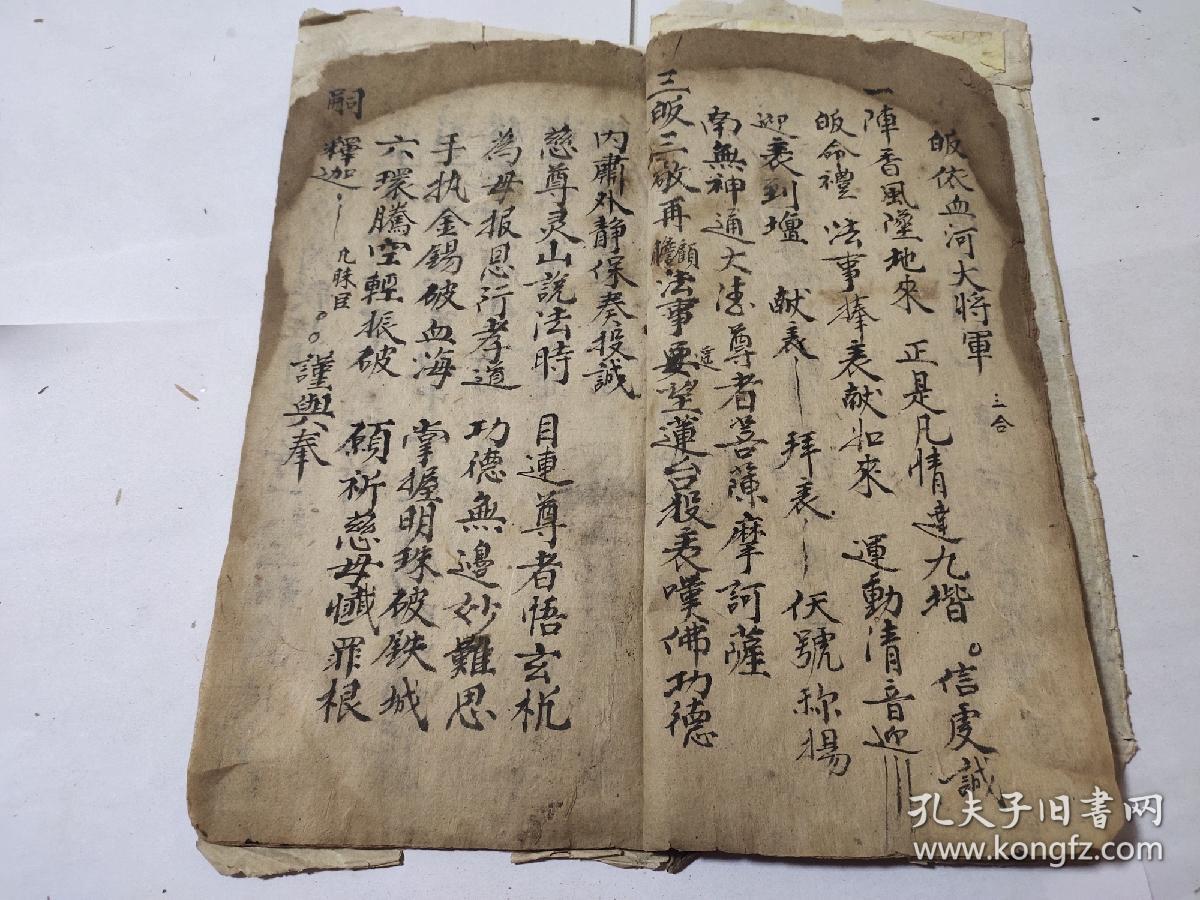 皈依血河大將軍 三合
一陣香風墜地來 正是凡情達九堦。信虔誠
皈命禮 法事捧表献如來 運動清音迎
迎表到壇 献表 拜表 伏號称揚
南無神通大法尊者菩薩摩訶薩
三皈三敬再瞻顧法事要達望蓮台投表嘆佛功德
内肅外静保奏投誠
慈尊灵山說法時 目連尊者悟玄机
為母报恩行孝道 功德無邊妙難思
手执金錫破血海 掌握明珠破鉄城
六環騰空輕振破 願祈慈母懺罪根
嗣釋迦
謹與奉
孔夫子旧書网
www.kongfz.com